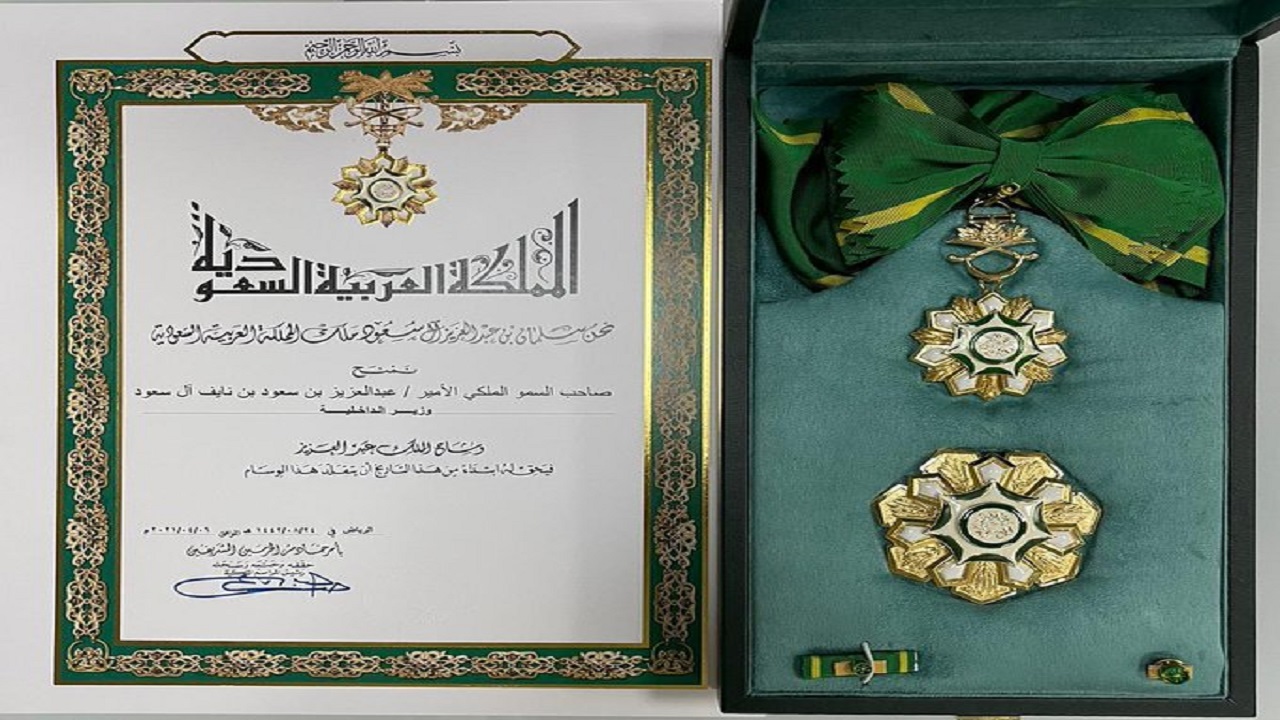 بسم الله الرحمن الرحيم
المملكة العربية السعودية
نحن سلمان بن عبد العزيز آل سعود ملك المملكة العربية السعودية
نمنح
صاحب السمو الملكي الأمير / عبدالعزيز بن سعود بن نايف آل سعود
وزير الداخلية
وشاح الملك عبد العزيز
فيحق له ابتداء من هذا التاريخ أن يتقلد هذا الوسام
الرياض في ١٤٤٢/٠٨/٢٤ هـ الموافق ٢٠٢١/٠٤/٠٦م
بأمر خادم الحرمين الشريفين